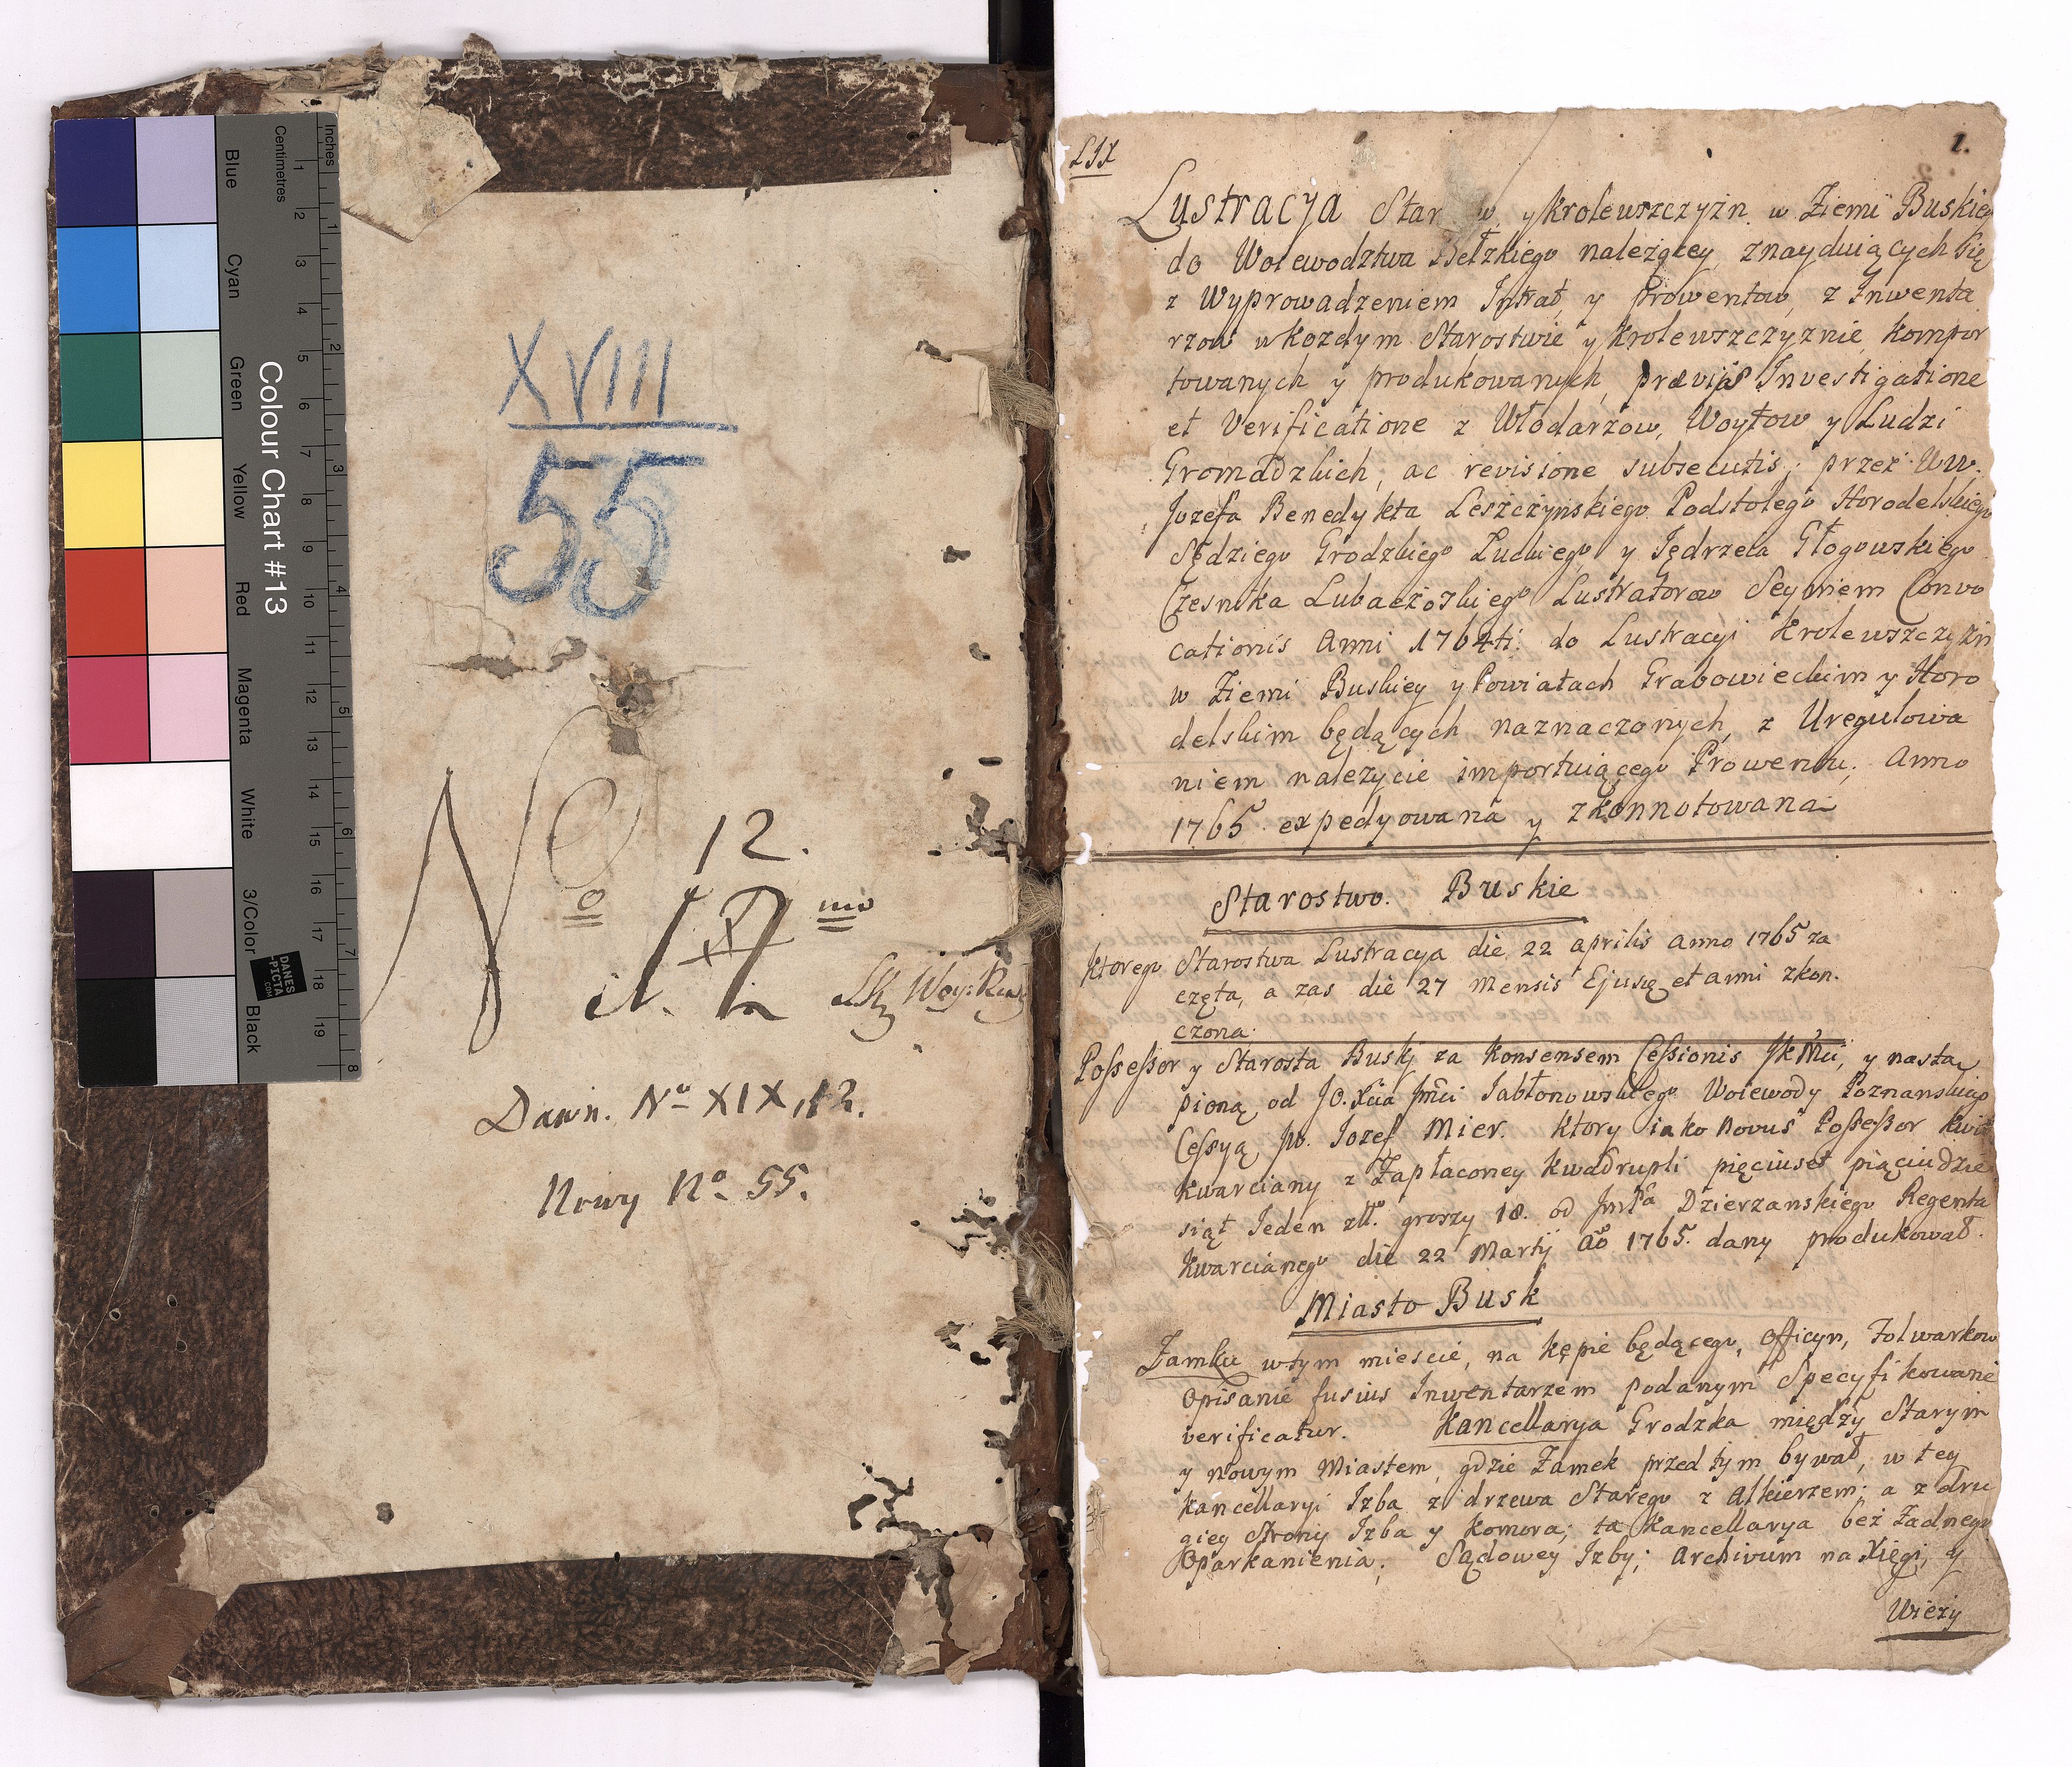 Inches
Centimetres
1 2 3 4 5 6 7 8 9 10 11 12 13 14 15 16 17 18 19
1 2 3 4 5 6 7 8
Colour Chart #13
Blue
Cyan
Green
Yellow
Red
Magenta
White
3/Color
Black
DANES
-PICTA
.COM
XVIII
55
No 12.
Dawn. No XIX, 12.
Nowy No 55.
LIX
1.
Lustracya Star w y Krolewszczyzn w Ziemi Buskiey
do Woiewodztwa Bełzkiego należącey, znayduiących się
z Wyprowadzeniem Intrat, y Prowentow, z Inwenta
rzow w Kozdym Starostwie y Krolewszczyznie, kompor
towanych y produkowanych, prævijs Investigatione
et Verificatione z Włodarzow, Woytow y Ludzi
Gromadzkich, ac revisione subsecutis, przez WW.
Jozefa Benedykta Leszczynskiego Podstolego Horodelskiego
Sędziego Grodzkiego Łuckiego, y Jędrzeia Głogowskiego
Czesnika Lubaczoskiego Lustratorow Seymem Convo
cationis Anni 1764ti do Lustracyi Krolewszczyzn
w Ziemi Buskiey y Powiatach Grabowieckim y Horo
delskim będących naznaczonych, z Uregulowa
niem należycie importuiącego Prowentu, Anno
1765 expedyowana y zkonnotowana
Starostwo. Buskie
Ktorego Starostwa Lustracya die 22 Aprilis Anno 1765 za
częta, a zas die 27 Mensis Ejusq et Anni zkon.
czona.
Possessor y Starosta Buskj za Konsensem Cessionis JKMci, y nastą
pioną od JO. Xcia Jmci Jabłonowskiego Woiewody Poznanskiego
Cessyą W. Jozef Mier. Ktory iako Novus Possessor Kwit
Kwarciany z Zapłaconey Kwadrupli pięciuset piąciudzie
siąt Jeden złł. groszy 18. od Jmsca Dzierzanskiego Regenta
Kwarcianego die 22 Martij Ao 1765. dany produkował.
Miasto Busk
Zamku w tym miescie, na kępie będącego, Officyn, Folwarkow
Opisanie fusius Inwentarzem podanym Specyfikowane
verificatur. Kancellarya Grodzka między Starym
y Nowym Miastem, gdzie Zamek przed tym bywał, w tey
Kancellaryi Izba z drzewa Starego z Alkierzem; a z dru
giey Strony Izba y Komora; ta Kancellarya bez Żadnego
Oparkanienia; Sądowey Izby; Archivum na Xięgi, y
Wieży